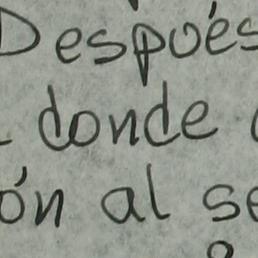 Despoés
donde
ón al se